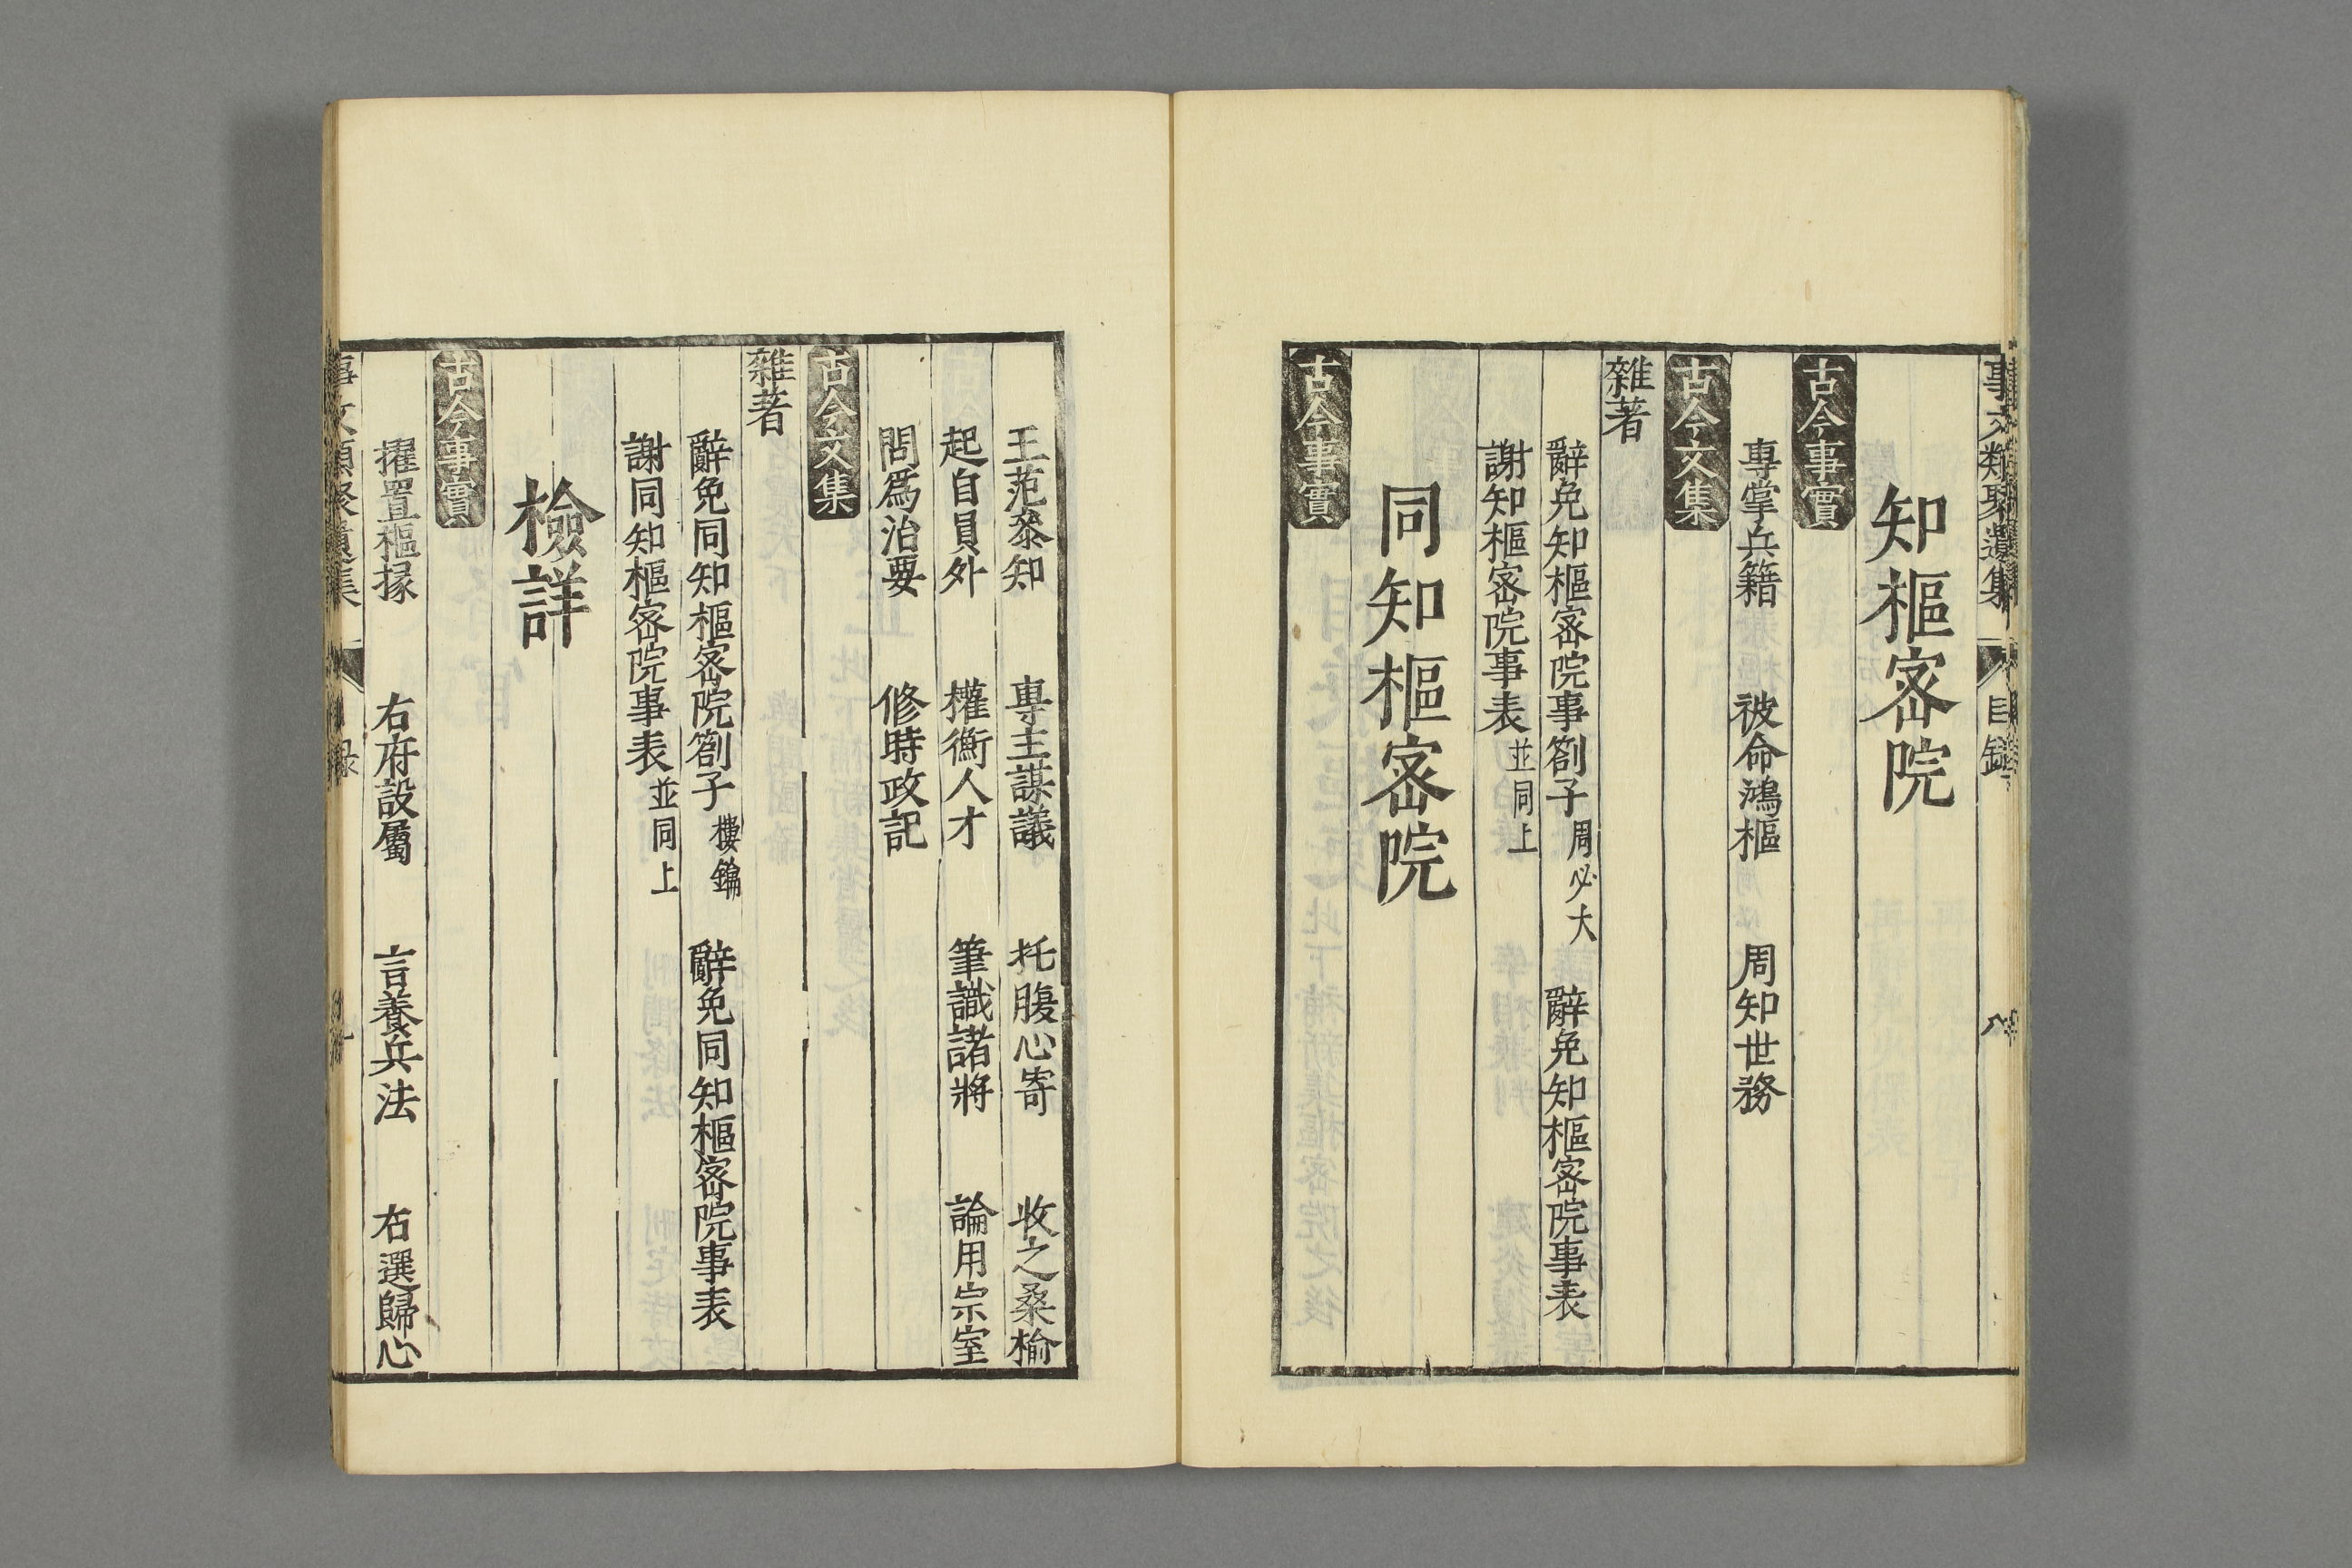 事文類聚遺集 目錄 八
知樞密院
古今事實
專掌兵籍 被命鴻樞 周知世務
古今文集
雜著
辭免知樞密院事劄子 周必大 辭免知樞密院事表
謝知樞密院事表 並同上
同知樞密院
古今事實
王范叅知 專主謀議 托腹心寄 收之桑榆
起自員外 權衡人才 筆識諸將 論用宗室
問爲治要 修時政記
古今文集
雜著
辭免同知樞密院劄子 樓鑰 辭免同知樞密院事表
謝同知樞密院事表 並同上
檢詳
古今事實
擢置樞掾 右府設屬 言養兵法 右選歸心